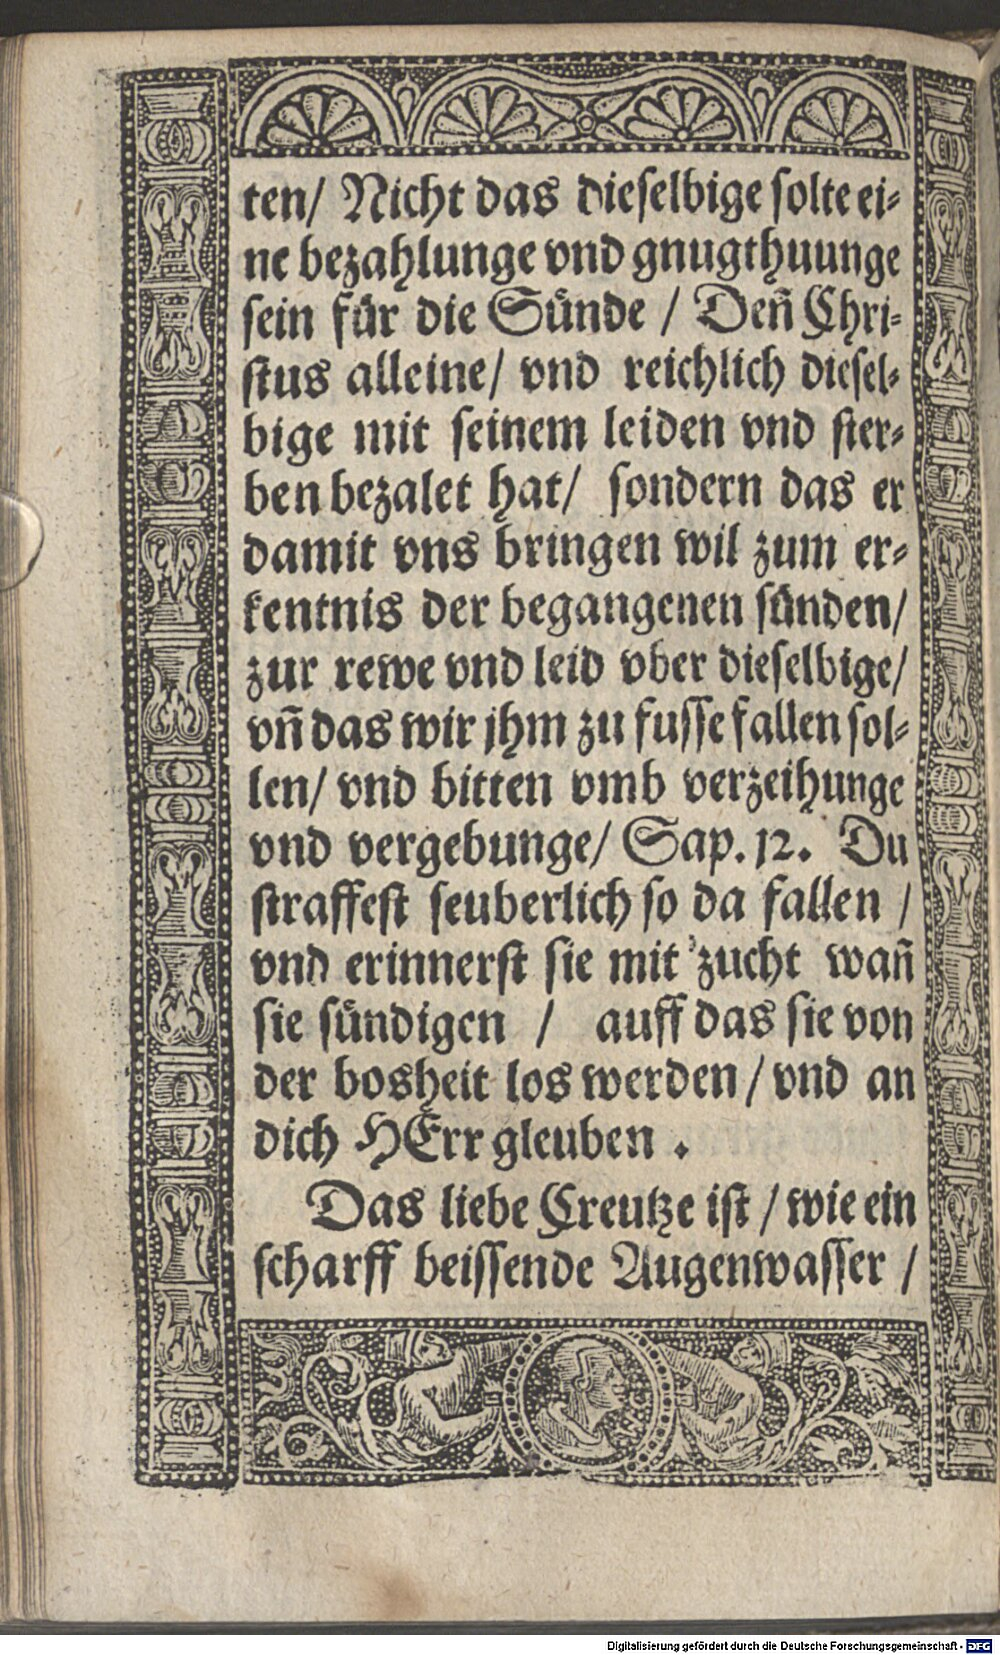 ten/ Nicht das dieselbige solte ei⸗
ne bezahlunge vnd gnugthuunge
sein fuͤr die Suͤnde / Deñ Chri⸗
stus alleine/ vnd reichlich diesel⸗
bige mit seinem leiden vnd ster⸗
ben bezalet hat/ sondern das er
damit vns bringen wil zum er⸗
kentnis der begangenen suͤnden/
zur rewe vnd leid vber dieselbige/
vñ das wir jhm zu fusse fallen sol⸗
len/ vnd bitten vmb verzeihunge
vnd vergebunge/ Sap. 12. Du
straffest seuberlich so da fallen /
vnd erinnerst sie mit zucht wañ
sie suͤndigen / auff das sie von
der bosheit los werden / vnd an
dich HErr gleuben .
Das liebe Creutze ist / wie ein
scharff beissende Augenwasser /
Digitalisierung gefördert durch die Deutsche Forschungsgemeinschaft - DFG